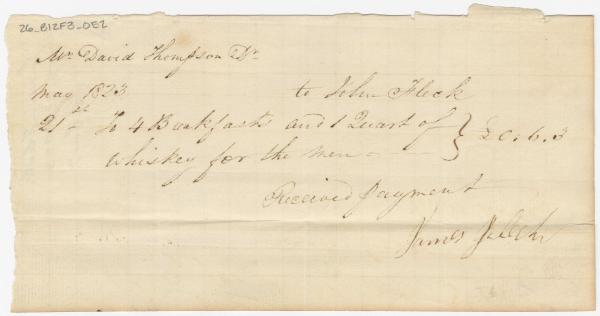 26_B12F3_062
Mr. David Thompson Dr.
May 1823 to John Fleck
21st To 4 Breakfasts and 1 Quart of } £0.6.3
whiskey for the men
Received payment
James Fleck